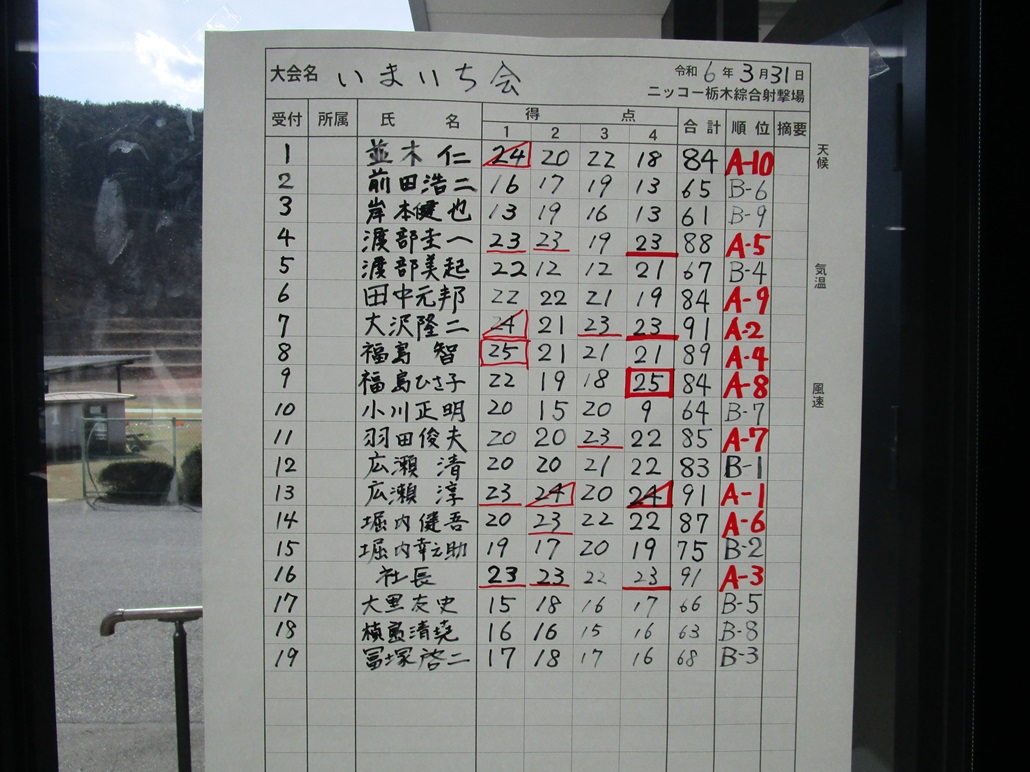 大会名 いまいち会 令和6年3月31日
ニッコー栃木綜合射撃場
受付 所属 氏名 得点 合計 順位 摘要
1 2 3 4
1 並木仁 24 20 22 18 84 A-10
2 前田浩二 16 17 19 13 65 B-6
3 岸本健也 13 19 16 13 61 B-9
4 渡部圭一 23 23 19 23 88 A-5
5 渡部美起 22 12 12 21 67 B-4
6 田中元邦 22 22 21 19 84 A-9
7 大沢隆二 24 21 23 23 91 A-2
8 福島智 25 21 21 21 89 A-4
9 福島ひさ子 22 19 18 25 84 A-8
10 小川正明 20 15 20 9 64 B-7
11 羽田俊夫 20 20 23 22 85 A-7
12 広瀬清 20 20 21 22 83 B-1
13 広瀬淳 23 24 20 24 91 A-1
14 堀内健吾 20 23 22 22 87 A-6
15 堀内幸之助 19 17 20 19 75 B-2
16 社長 23 23 22 23 91 A-3
17 大黒友史 15 18 16 17 66 B-5
18 植島清 16 16 15 16 63 B-8
19 冨塚啓二 17 18 17 16 68 B-3
天候
気温
風速